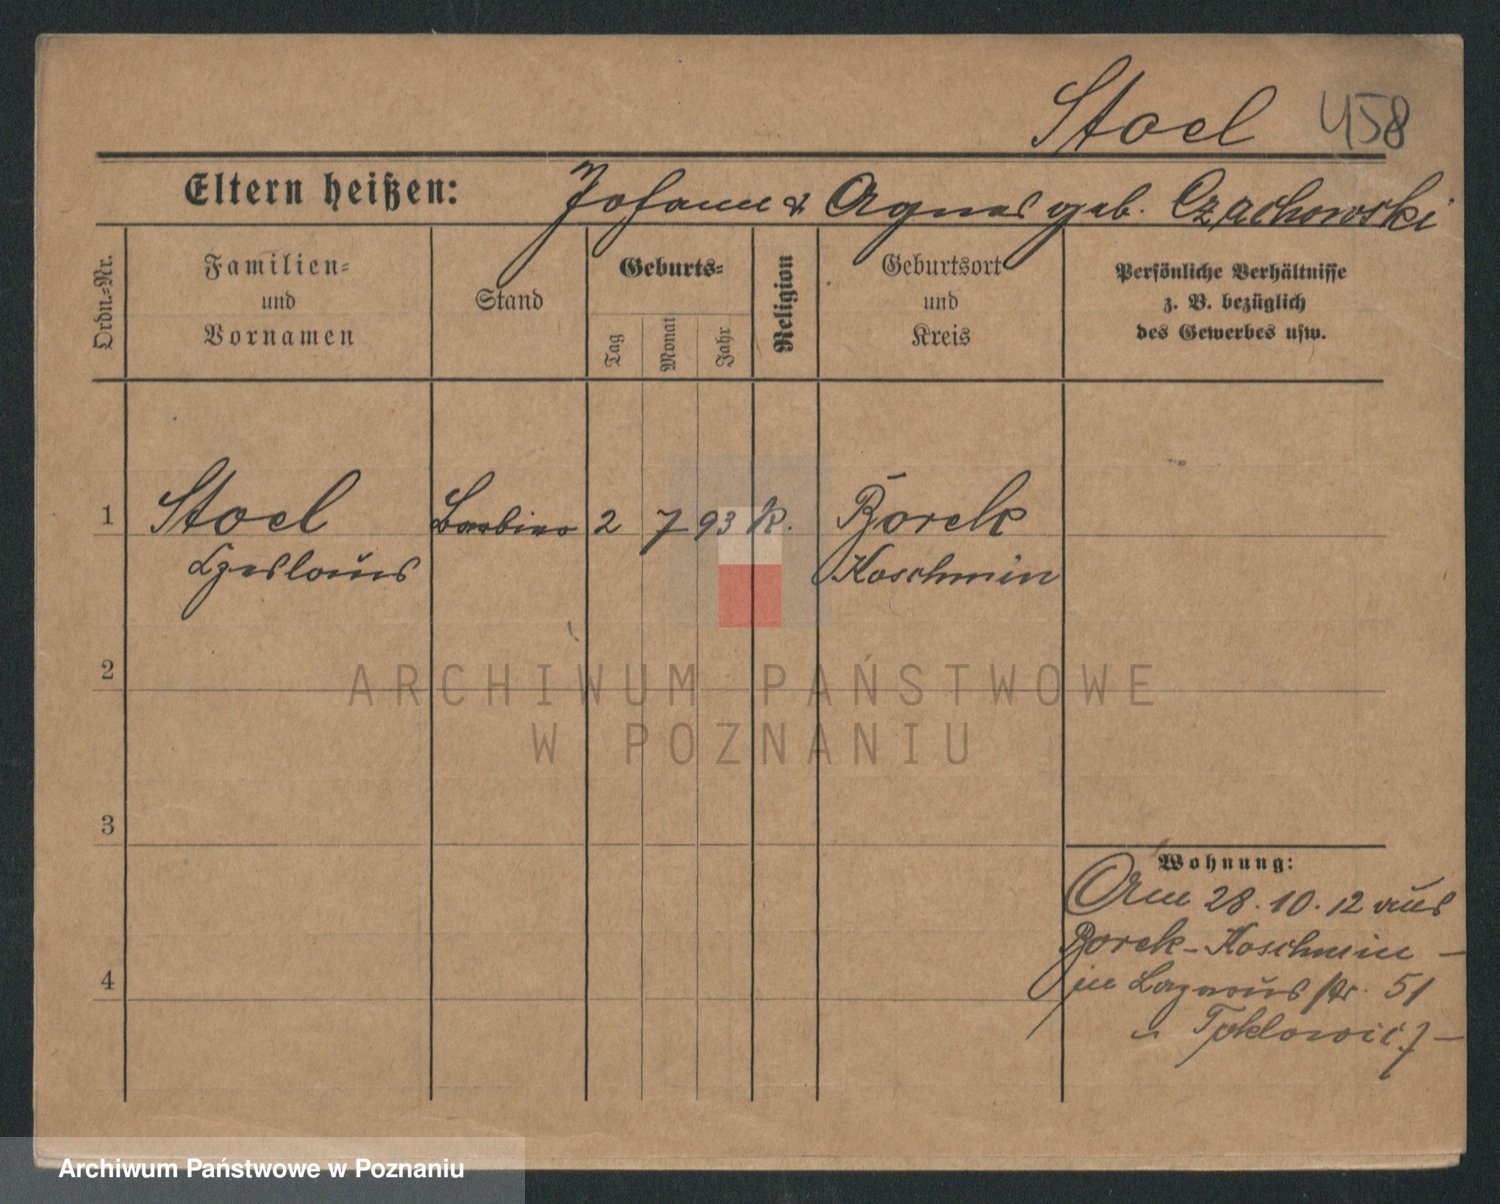 Stoel 458
Eltern heißen: Johann & Agnes geb. Czachowski
Ordn.-Nr.
Familien-
und
Vornamen
Stand
Geburts-
Tag
Monat
Jahr
Religion
Geburtsort
und
Kreis
Persönliche Verhältnisse
z. B. bezüglich
des Gewerbes usw.
1 Stoel Barbier 2 7 93 K. Borek
Czeslaus Koschmin
2
3
4
Wohnung:
Am 28.10.12 aus
Borek-Koschmin –
in Lazarus str. 51
ARCHIWUM PAŃSTWOWE
W POZNANIU
Archiwum Państwowe w Poznaniu